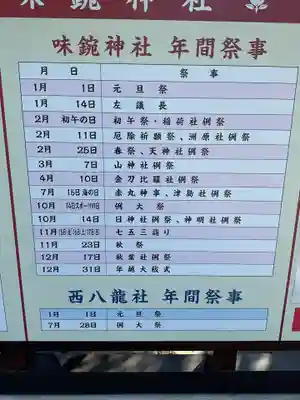 味鋺神社
味鋺神社 年間祭事
月 日 祭事
1月 1日 元旦祭
1月 14日 左義長
2月 初午の日 初午祭・稲荷社例祭
2月 11日 厄除祈願祭、洲原社例祭
2月 25日 春祭、天神社例祭
3月 7日 山神社例祭
4月 10日 金刀比羅社例祭
7月 15日 海の日 赤丸神事、津島社例祭
10月 例大祭
10月 14日 日神社例祭、神明社例祭
11月 七五三詣り
11月 23日 秋祭
12月 17日 秋葉社例祭
12月 31日 年越大祓式
西八龍社 年間祭事
1月 1日 元旦祭
7月 28日 例大祭